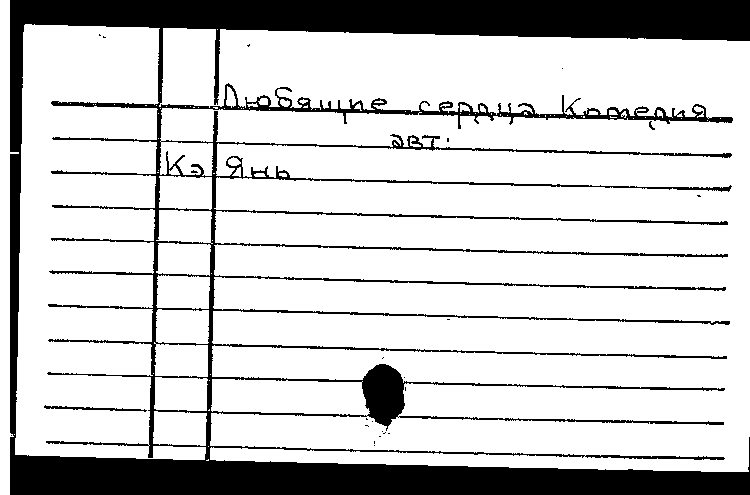 Любящие сердца. Комедия
авт:
Кэ Янь